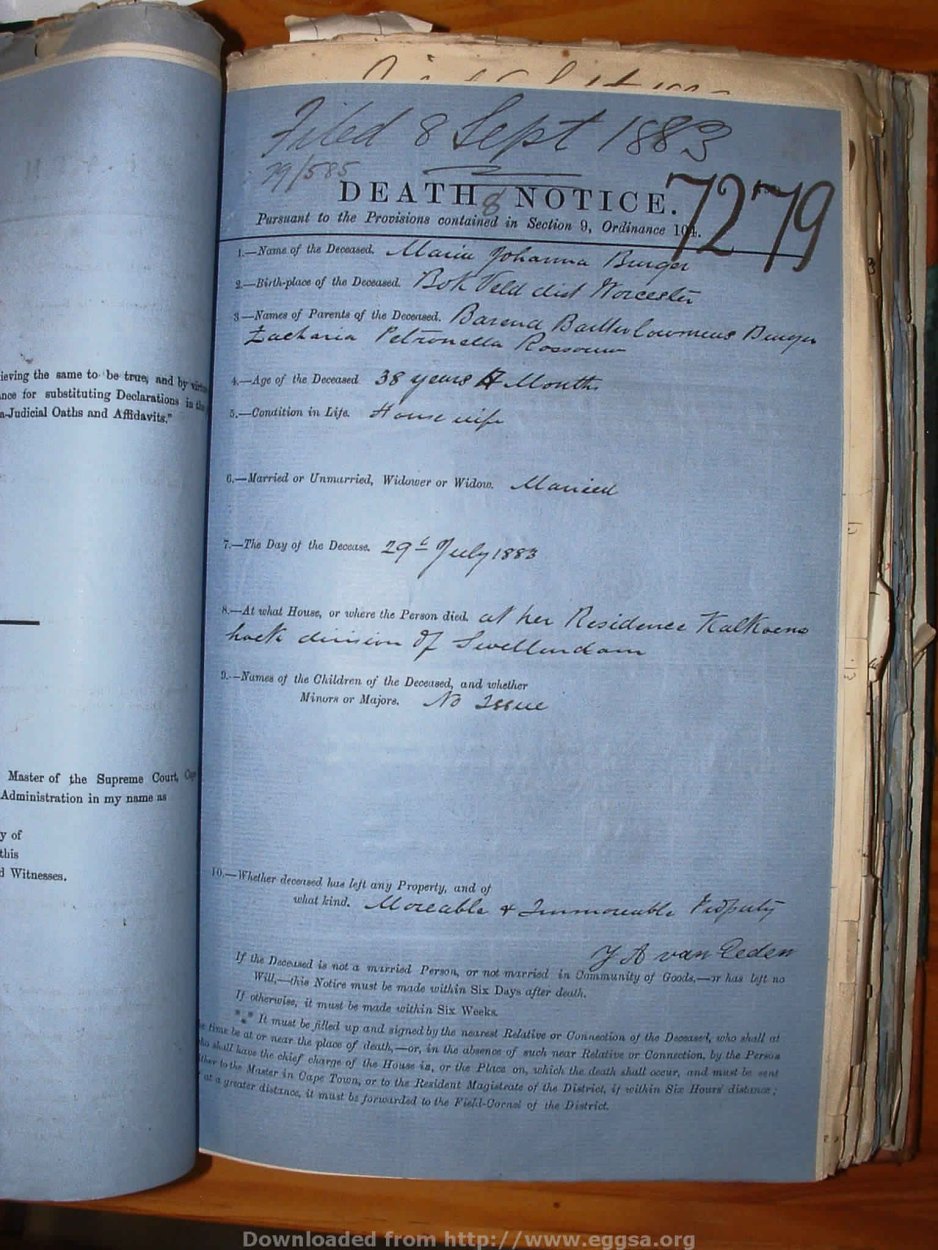 ieving the same to be true, and by virtue
nce for substituting Declarations in the
a-Judicial Oaths and Affidavits."
Master of the Supreme Court,
Administration in my name as
y of
this
d Witnesses.
Filed 8 Sept 1883
79/585
8
DEATH NOTICE.
7279
Pursuant to the Provisions contained in Section 9, Ordinance 104.
1.—Name of the Deceased. Maria Johanna Burger
2.—Birth-place of the Deceased. Bok Veld dist Worcester
3—Names of Parents of the Deceased. Barend Barthlowmeus Burger
Zacharia Petronella Rossouw
4.—Age of the Deceased 38 years Months
5.—Condition in Life. House wife
6.—Married or Unmarried, Widower or Widow. Married
7.—The Day of the Decease. 29t July 1883
8.—At what House, or where the Person died. at her Residence Kalkoens
hoek division of Swellendam
9.—Names of the Children of the Deceased, and whether
Minors or Majors. No Issue
10.—Whether deceased has left any Property, and of
what kind. Moveable & Immoveable Property
van Eeden
If the Deceased is not a married Person, or not married in Community of Goods,—or has left no
Will,—this Notice must be made within Six Days after death.
If otherwise, it must be made within Six Weeks.
*** It must be filled up and signed by the nearest Relative or Connection of the Deceased, who shall at
e time be at or near the place of death,—or, in the absence of such near Relative or Connection, by the Person
ho shall have the chief charge of the House in, or the Place on, which the death shall occur, and must be sent
ither to the Master in Cape Town, or to the Resident Magistrate of the District, if within Six Hours' distance;
at a greater distance, it must be forwarded to the Field-Cornet of the District.
Downloaded from http://www.eggsa.org